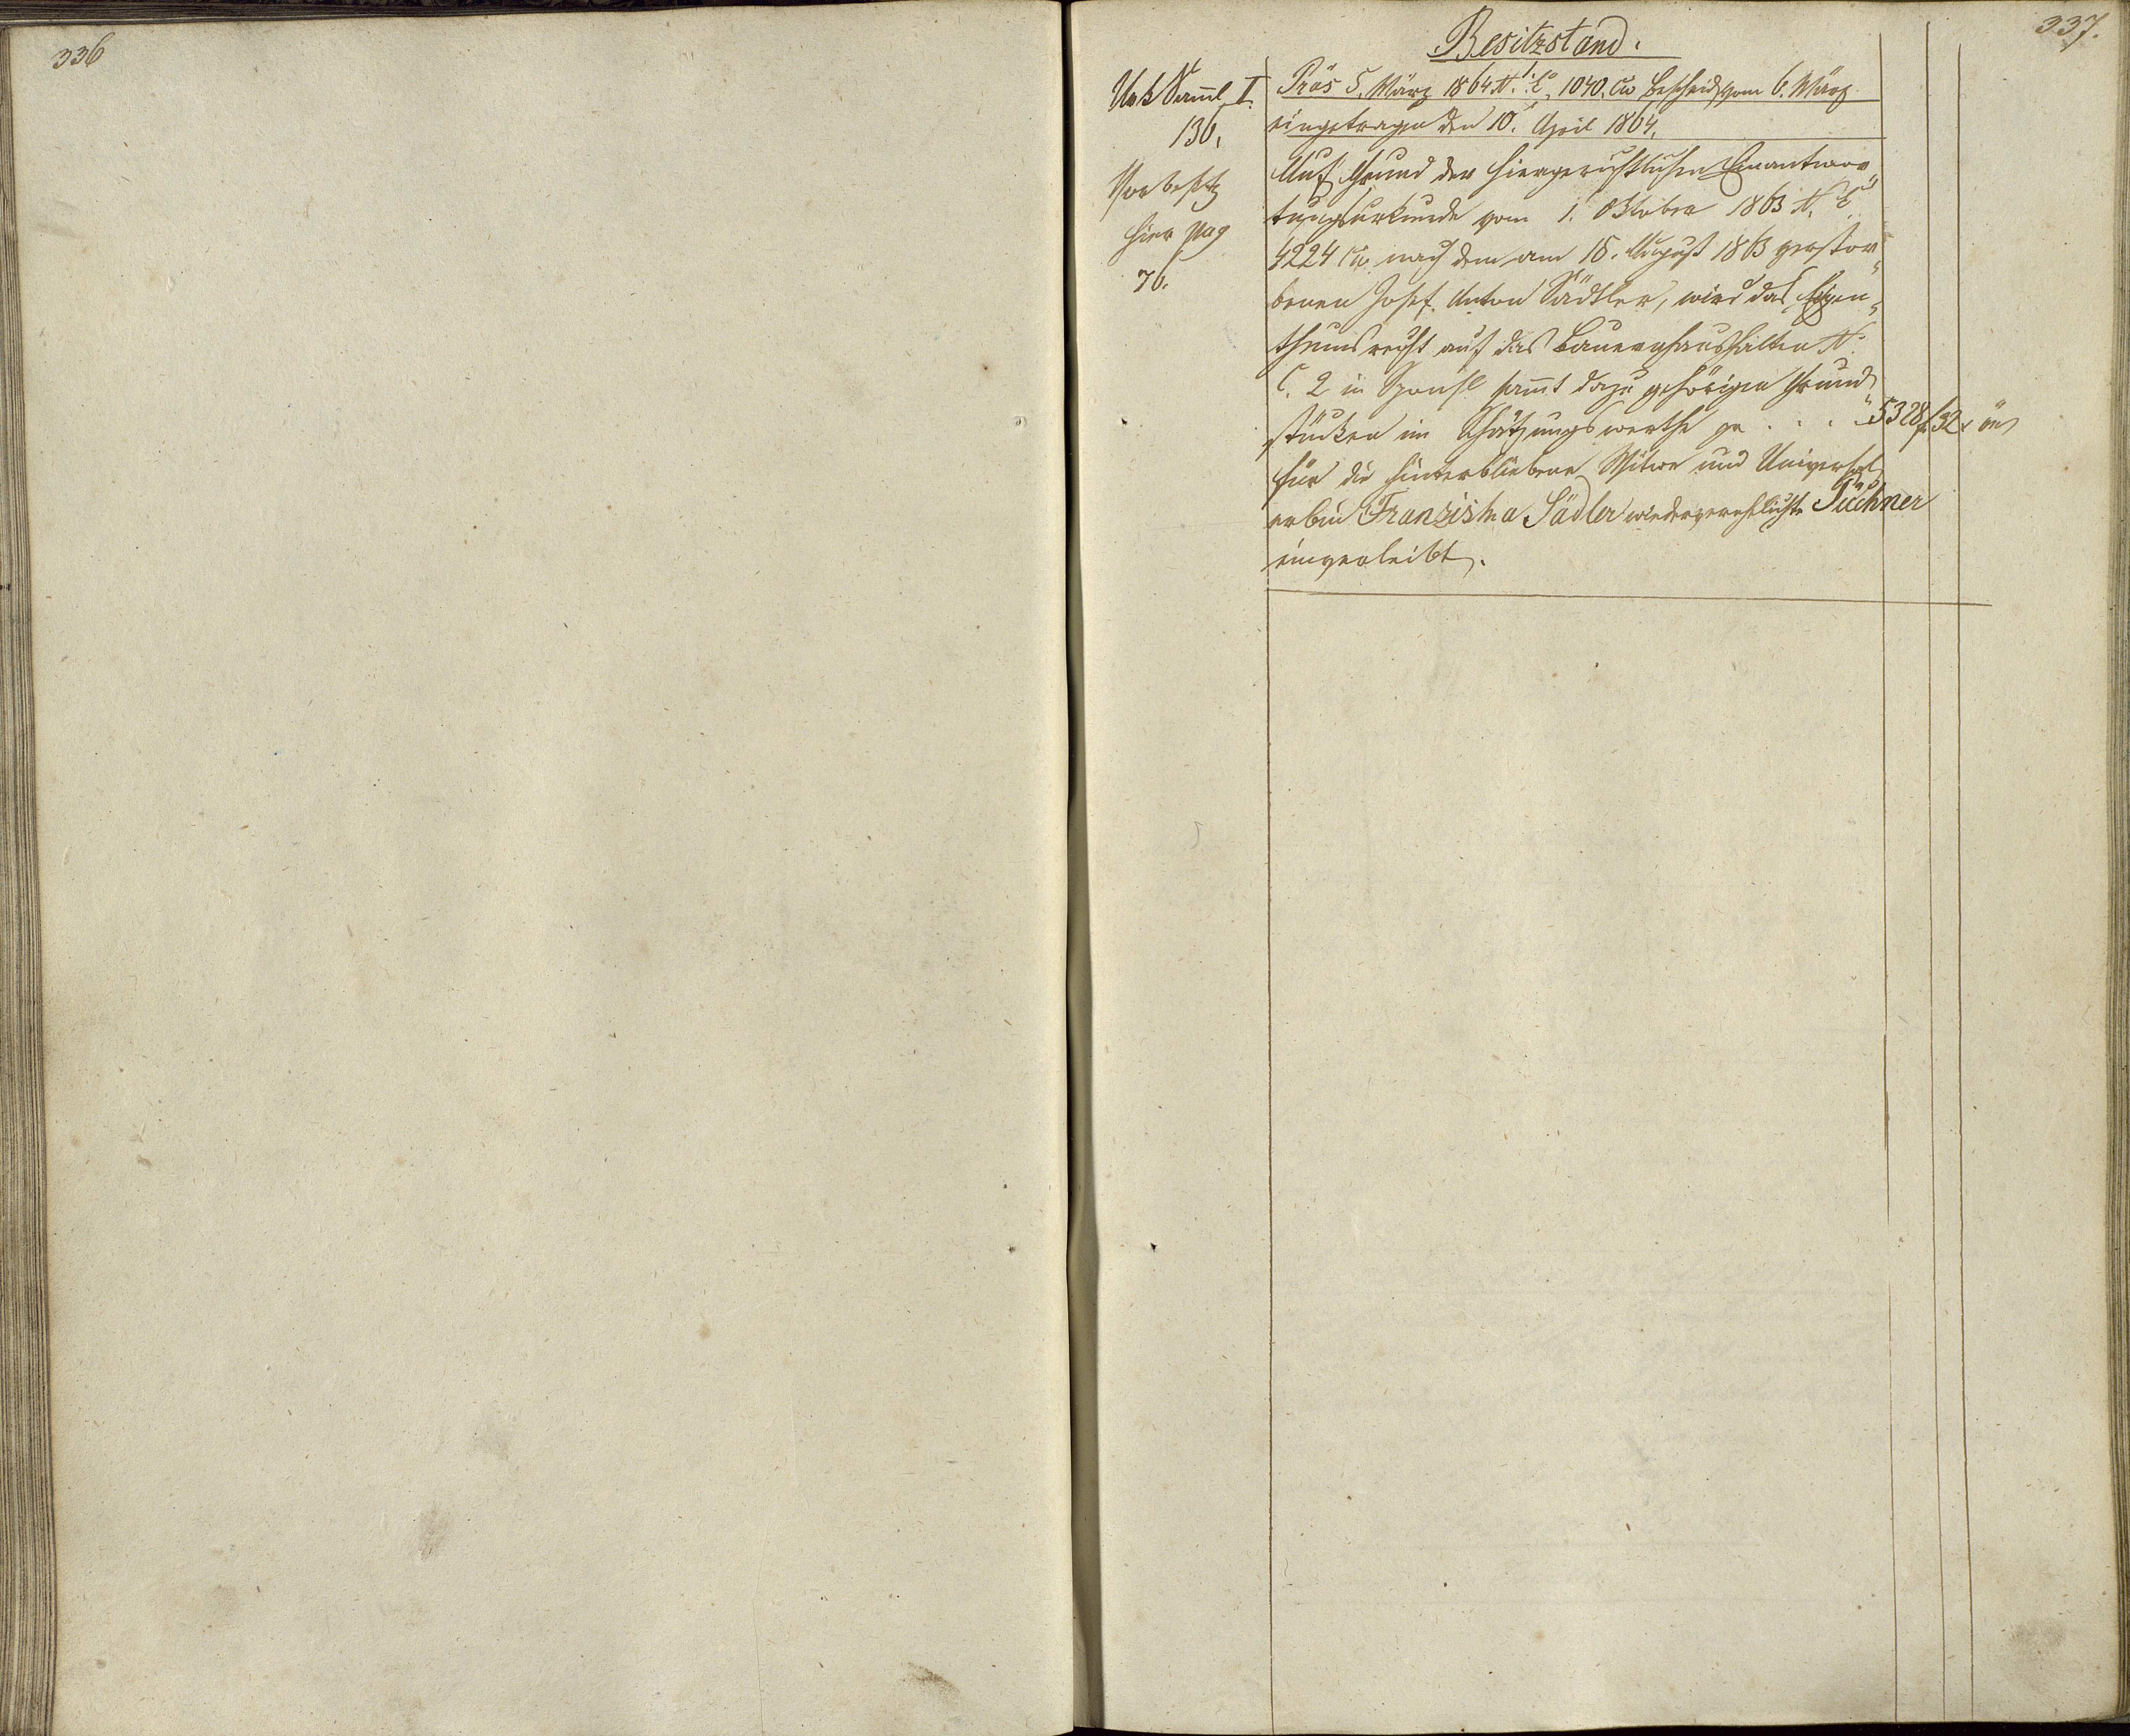 336
337.
Besitzstand.
Urk Samml I.
136.
Vorbesitz
hier pag
76.
Präs 5. März 1864 N. E. 1040. civ Bescheid vom 6. März
eingetragen den 10. April 1864.
Auf Grund der hiergerichtlichen Einantwor„
tungsurkunde vom 1. Oktober 1863 N. E.
4224 civ nach dem am 16. August 1863 verstor„
benen Josef Anton Sädtler, wird das Eigen„
thumsrecht auf das Bauernhaus N.
C. 2 in sammt dazu gehörigen Grund„
stücken im Schätzungswerthe pr . . . . 5328 f 32 x
für die hinterbliebene Witwe und Universal
erbin Franziska Sädler wiederverehlichte Püchner
einverleibt.